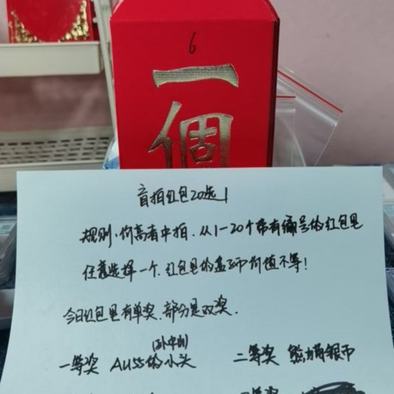 6
一個
盲拍红包20选1
规则:价高者中拍,从1-20个带有编号的红包里
任意选择一个,红包里的盖币价值不等!
今日红包里有单奖,部分是双奖.
一等奖 AU55的小头 二等奖 熊猫银币